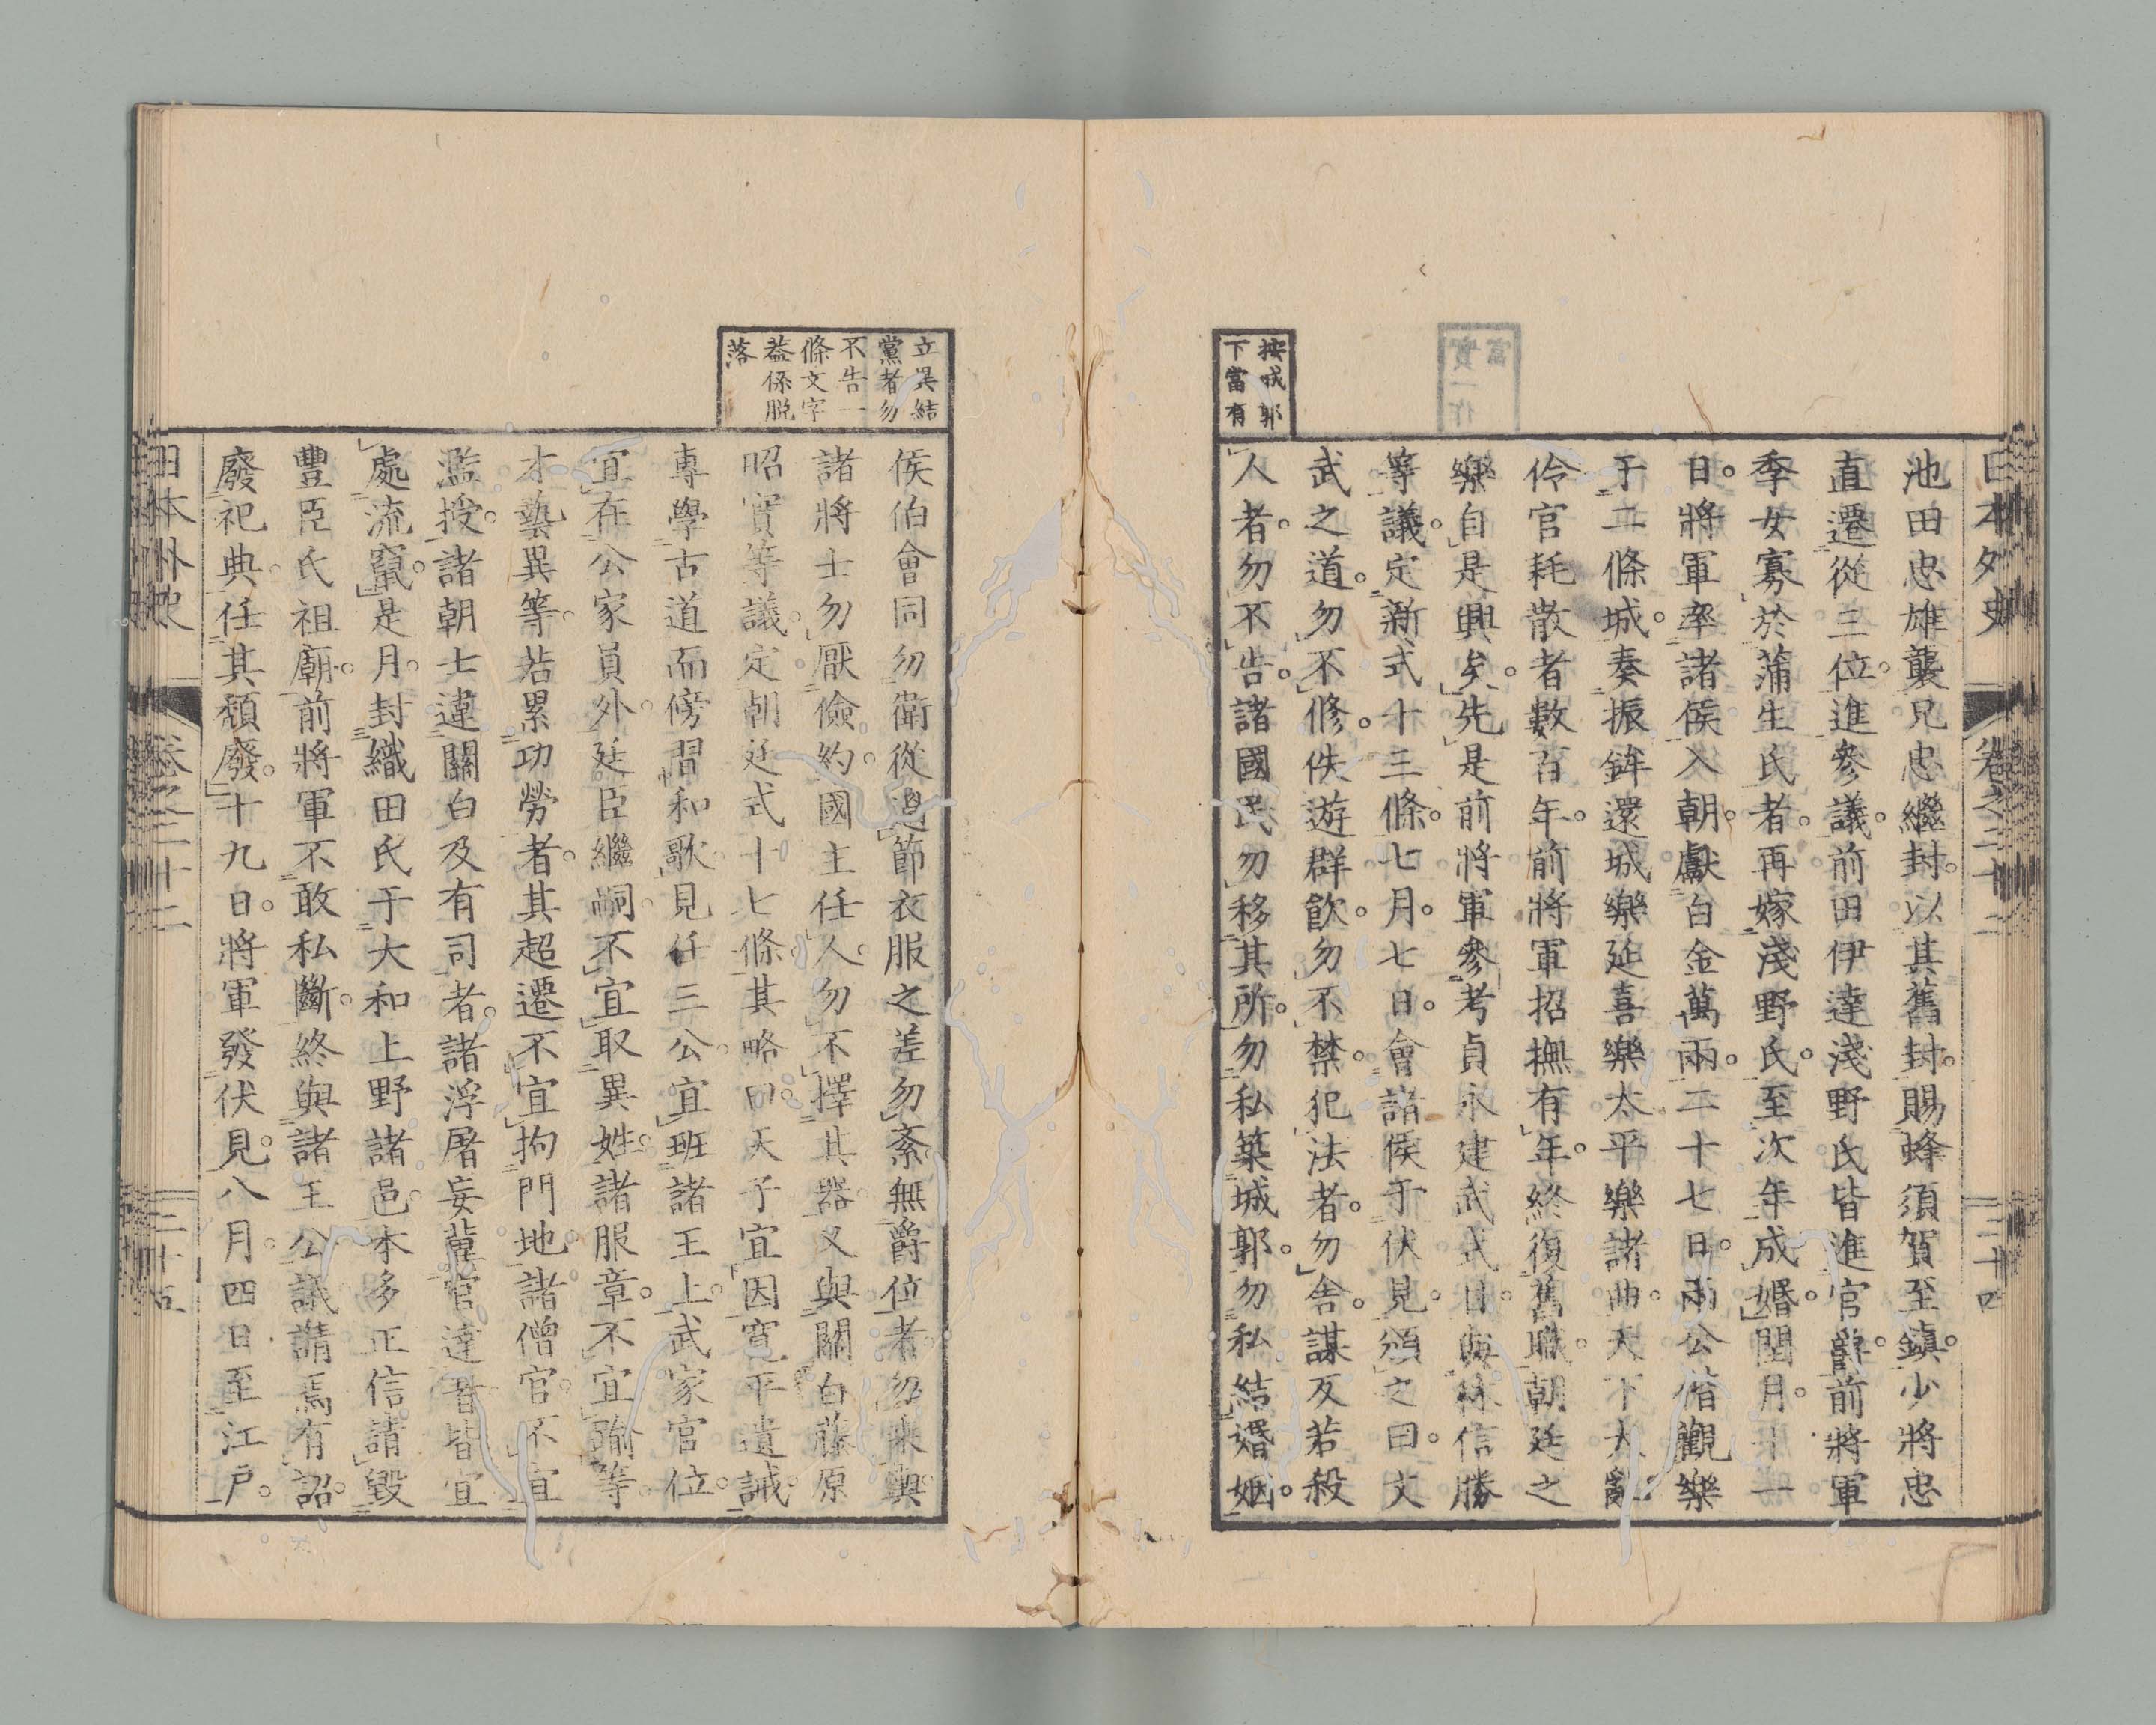 日本外史 卷之二十二 三十四
池田忠雄襲兄忠繼封。以其舊封。賜蜂須賀至鎮。少將忠
直遷從三位。進參議。前田伊達淺野氏皆進官爵。前將軍
季女寡於蒲生氏者。再嫁淺野氏。至次年成婚。閏月十一
日。將軍率諸侯入朝。獻白金萬兩。二十七日。兩公偕觀樂
于二條城。奏振鉾還城樂延喜樂太平樂諸曲。天下大亂。
伶官耗散者數百年。前將軍招撫有年。終復舊職。朝廷之
樂自是興矣。先是前將軍參考貞永建武式目。與林信勝
等議。定新式十三條。七月七日。會諸侯于伏見。頒之。曰。文
武之道。勿不修。佚遊群飲。勿不禁。犯法者。勿舍。謀反若殺
按城郭
下當有
人者。勿不告。諸國民勿移其所。勿私築城郭。勿私結婚姻。
立異結
黨者勿
不告一
條文字
葢係脱
落
侯伯會同勿衛從過節。衣服之差勿紊。無爵位者勿乘輿。
諸將士勿厭儉約。國主任人。勿不擇其器。又與關白藤原
昭實等議。定朝廷式十七條。其略曰。天子宜因寬平遺誡。
專學古道而傍習和歌。見任三公。宜班諸王上。武家官位。
宜在公家員外。廷臣繼嗣。不宜取異姓。諸服章。不宜踰等。
才藝異等。若累功勞者。其超遷不宜拘門地。諸僧官。不宜
濫授。諸朝士違關白及有司者。諸浮屠妄冀官達者。皆宜
處流竄。是月。封織田氏于大和上野諸邑。本多正信請毀
豐臣氏祖廟。前將軍不敢私斷。終與諸王公議請焉。有詔。
廢祀典。任其頹廢。十九日。將軍發伏見。八月四日至江戶。
日本外史 卷之二十二 三十五